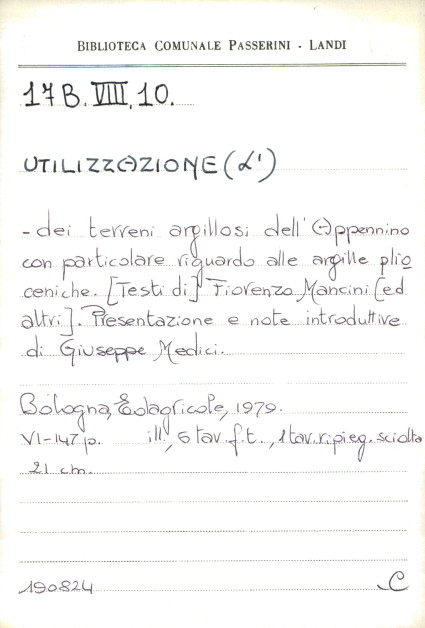 BIBLIOTECA COMUNALE PASSERINI - LANDI
17B.VIII.10.
UTILIZZAZIONE (L')
- dei terreni argillosi dell'Appennino
con particolare riguardo alle argille plio
ceniche. [Testi di] Fiorenzo Mancini [ed
altri]. Presentazione e note introduttive
di Giuseppe Medici.
Bologna, Edagricole, 1979.
VI-147 p. ill., 6 tav. f.t., 1 tav. ripieg. sciolta
21 cm.
190824 C